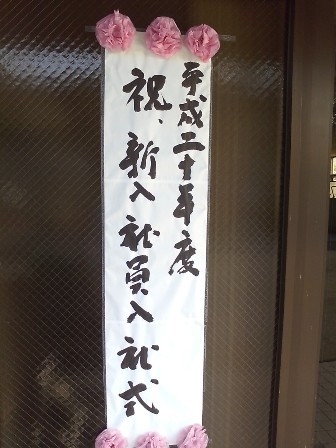 平成二十年度
祝、新入社員入社式